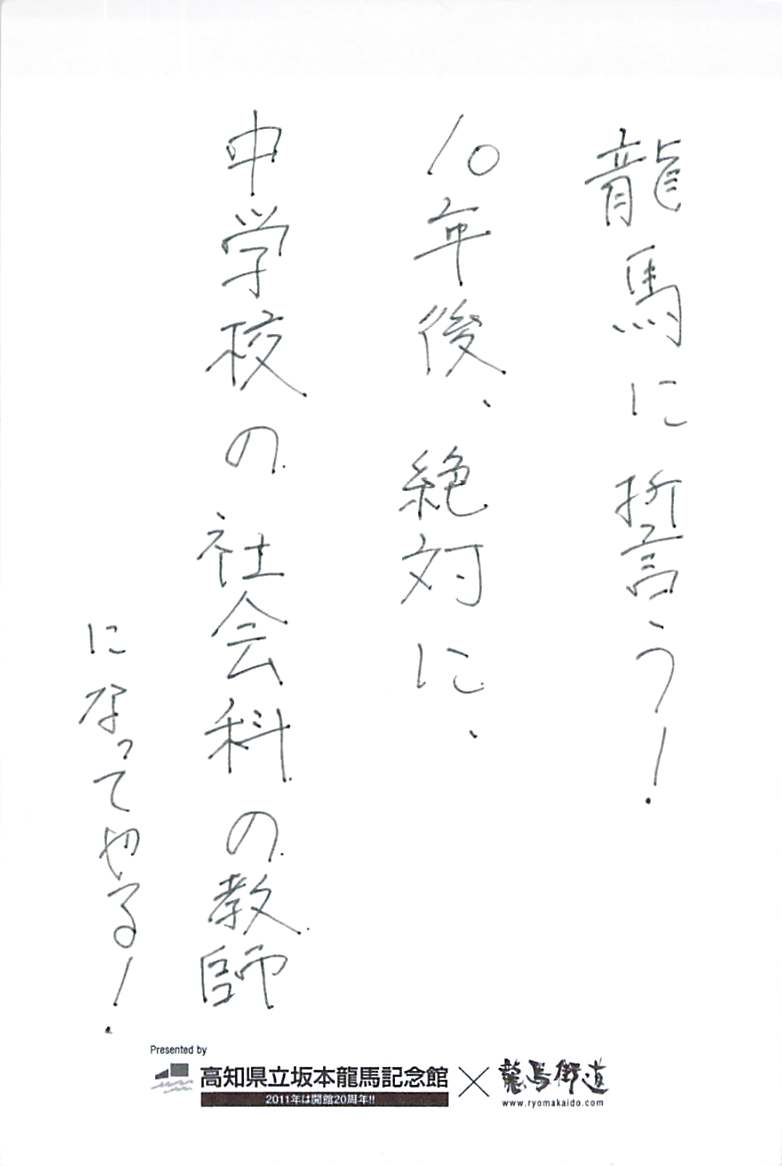 龍馬に誓う!
10年後、絶対に、
中学校の社会科の教師
になってやる!
Presented by
高知県立坂本龍馬記念館
2011年は開館20周年!!
×
龍馬街道
www.ryomakaido.com